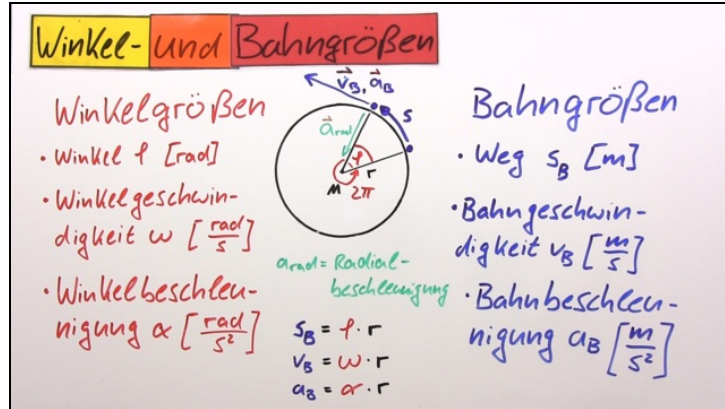 Winkel- und Bahngrößen
Winkelgrößen
• Winkel φ [rad]
• Winkelgeschwin-
digkeit ω [rad/s]
• Winkelbeschleu-
nigung α [rad/s²]
v⃗_B, a⃗_B
B
s
a⃗_rad
φ
r
M
2π
a_rad = Radial-
beschleunigung
s_B = φ · r
v_B = ω · r
a_B = α · r
Bahngrößen
• Weg s_B [m]
• Bahngeschwin-
digkeit v_B [m/s]
• Bahnbeschleu-
nigung a_B [m/s²]